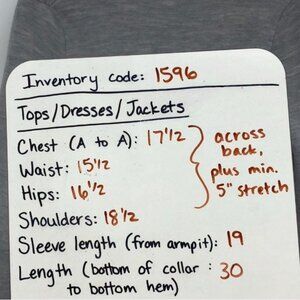 Inventory code: 1596
Tops/Dresses/Jackets
Chest (A to A): 17 1/2
Waist: 15 1/2
Hips: 16 1/2
Shoulders: 18 1/2
Sleeve length (from armpit): 19
Length (bottom of collar : 30
to bottom hem)
across
back,
plus min.
5" stretch